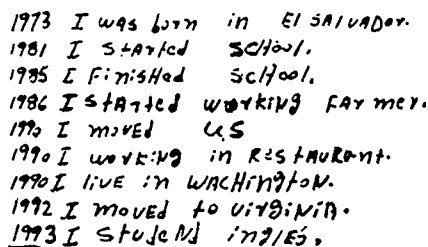 1973 I was born in El SAlVADor.
1981 I stArted school.
1985 I Finished school.
1986 I stArted working FArmer.
1990 I movEd US
1990 I working in REstAuRant.
1990 I livE in WACHington.
1992 I movEd to VirginiA.
1993 I studeNd inglés.